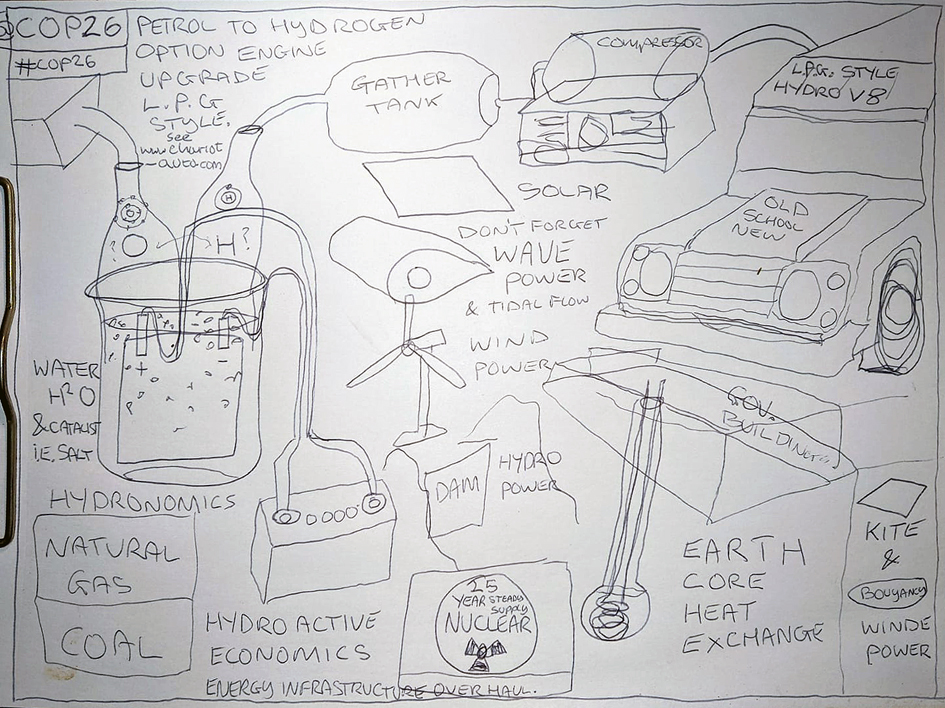 @COP26
#COP26
PETROL TO HYDROGEN
OPTION ENGINE
UPGRADE
L.P.G
STYLE.
see
www.chariot
-auto.com
GATHER
TANK
COMPRESSOR
L.P.G. STYLE
HYDRO V8
SOLAR
DON'T FORGET
WAVE
POWER
& TIDAL FLOW
WIND
POWER
OLD
SCHOOL
NEW
O
H
? O
H?
+
-
WATER
H2O
& CATALIST
i.E. SALT
HYDRONOMICS
NATURAL
GAS
COAL
DAM
HYDRO
POWER
GOV.
BUILDING
HYDRO ACTIVE
ECONOMICS
ENERGY INFRASTRUCTURE OVER HAUL.
25
YEAR STEADY
SUPPLY
NUCLEAR
EARTH
CORE
HEAT
EXCHANGE
KITE
&
BOUYANCY
WINDE
POWER